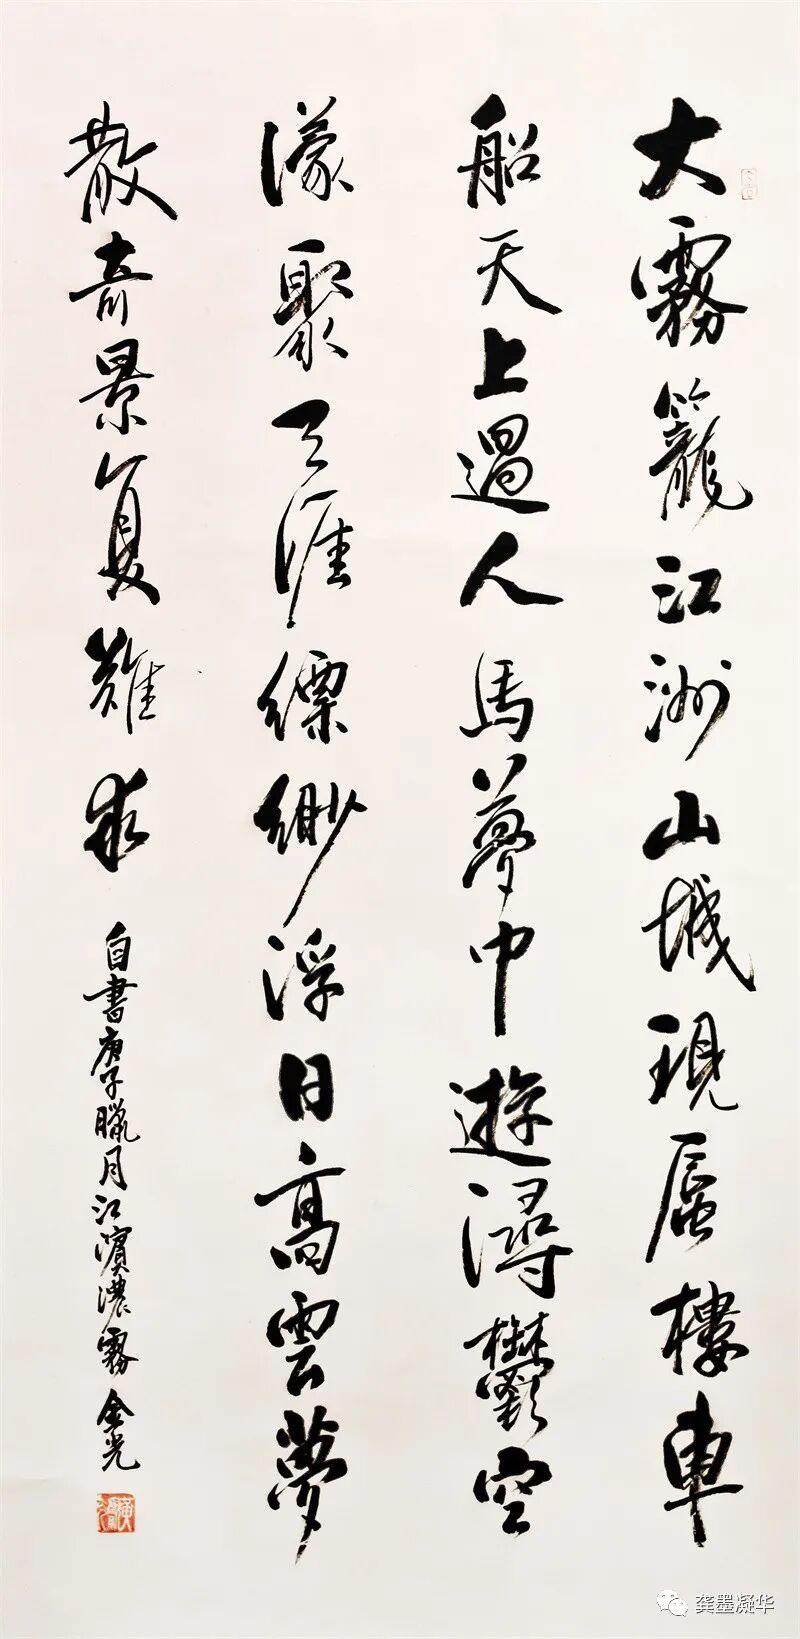 大霧籠江洲山城現蜃樓車
船天上過人馬夢中遊潯鬱空
濛聚天涯縹緲浮日高雲夢
散奇景复難求
自書庚子臘月江濱濃霧 金光
龚墨凝华